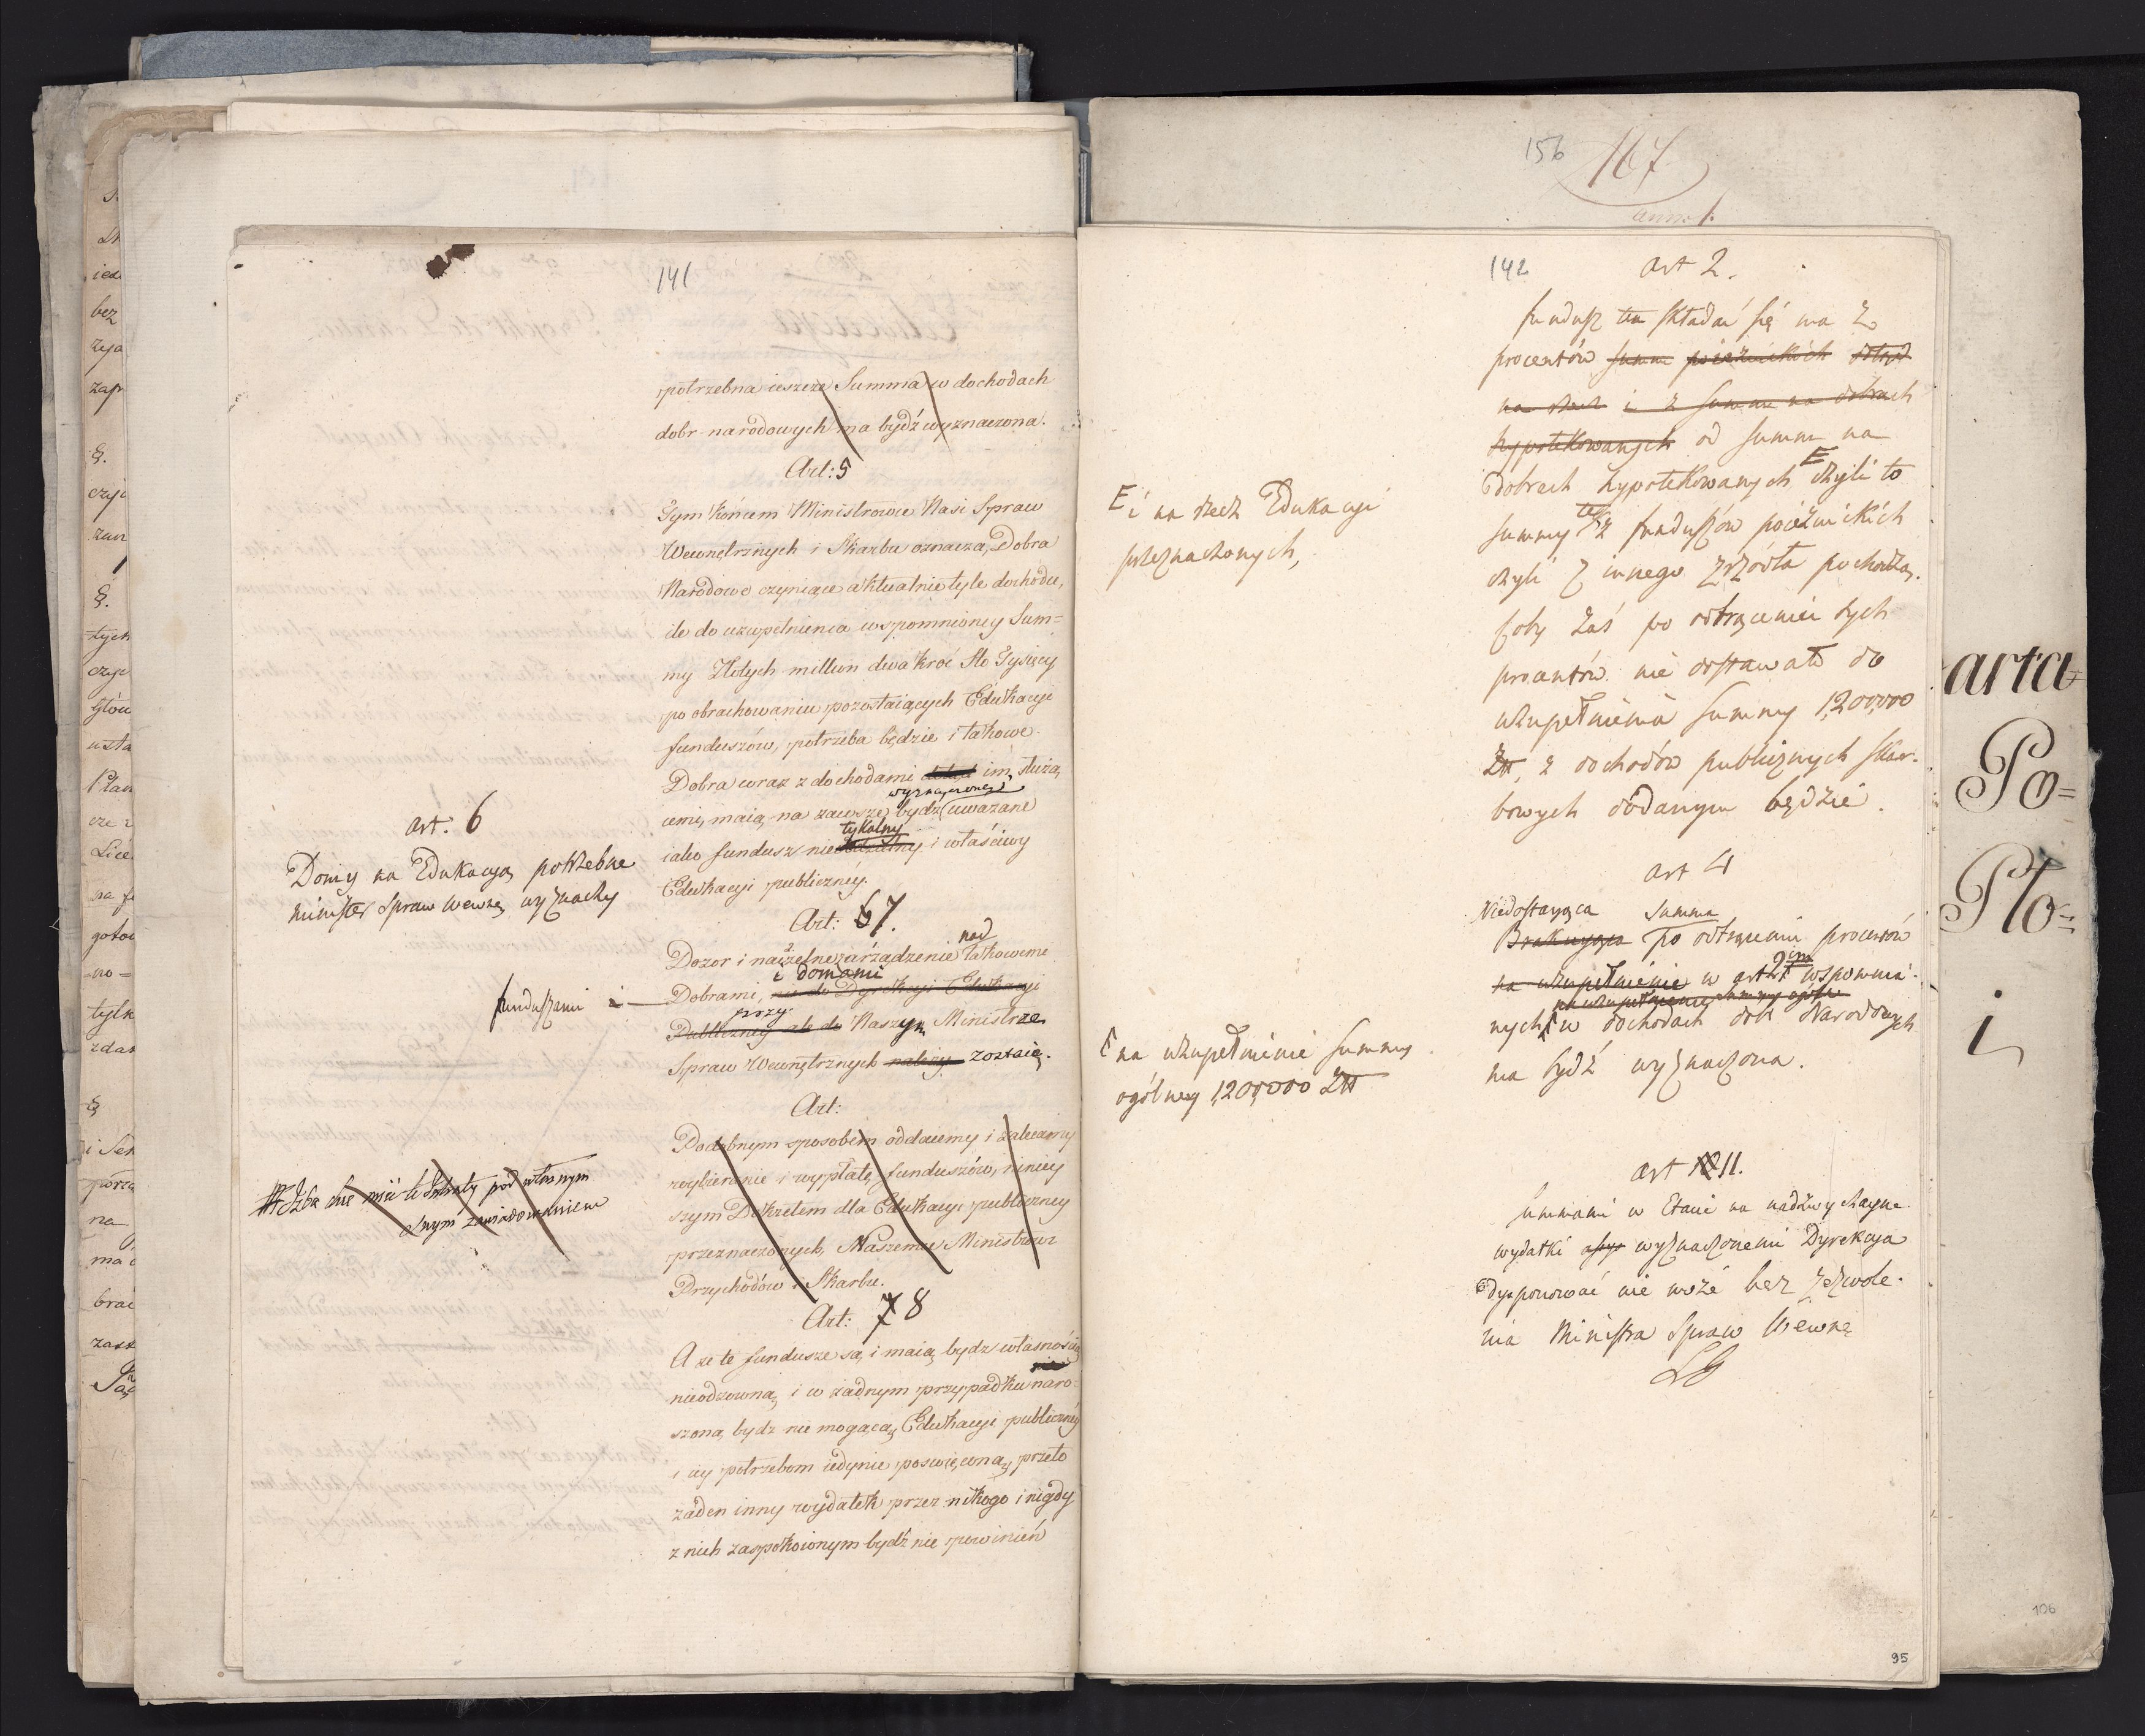 141
potrzebna ieszcze Summa w dochodach
dobr narodowych ma bydź wyznaczona.
Art: 5
Tym końcem Ministrowie Nasi Spraw
Wewnętrznych i Skarbu oznaczą, Dobra
Narodowe czyniące aktualnie tyle dochodu,
ile do uzupełnienia wspomnioney Sum=
my Złotych million dwa kroć Sto Tysięcy
po obrachowaniu pozostaiących Edukacyi
funduszów, potrzeba będzie i takowe
Dobra wraz z dochodami im służą,
wyznaczone i
cemi, maią na zawsze bydź uważane
tykalny
iako fundusz nie i właściwy
Edukacyi publiczney.
art. 6
Domy na Edukacyą potrzebne
Minister Spraw Wewnę wyznaczy
Art: 67.
nad
Dozor i naczelne zarządzenie takowemi
i domami
funduszami i
Dobrami, nie do Dyrekcyi Edukacyi
przy
Publiczney ale do Naszym Ministrze
Spraw Wewnętrznych należy zostaią.
Art:
Podobnym sposobem oddaiemy i zalecamy
wybieranie i wypłatę funduszów, niniey
szym Dekretem dla Edukacyi publiczney
przeznaczonych, Naszemu Ministrowi
Przychodów i Skarbu.
Izba chce mieć te pod własnym
swym zawiadowaniem
Art: 7 8
A że te fundusze są, i maią bydź własnością
nieodzowną, i w żadnym przypadku naro-
szoną bydź nie mogącą, Edukacyi publiczney
i iey potrzebom iedynie poswięconą, przeto
żaden inny wydatek przez nikogo i nigdy
z nich zaspokoionym bydź nie powinień
156
167
142
art 2.
fundusz ten składać się ma z
procentów summ poiezuickich
na rzecz i z summ na dobrach
hypotekowanych od summ na
dobrach hypotekowanych E czyli to
E i na rzecz Edukacyi
przeznaczonych,
summy te z funduszów poiezuickich
czyli z innego zrzódła pochodzą.
Coby zaś po odtrąceniu tych
procentów nie dostawało do
uzupełnienia summy 1,200,000
Złł, z dochodów publicznych skar-
bowych dodanym będzie.
art 4
Niedostaiąca Summa
Brakuiąca po odtrąceniu procentów
na uzupełnienie w art 2gim wspomnia-
na uzupełnienie summy ogólney
nych w dochodach dobr Narodowych
ma bydź wyznaczona.
na uzupełnienie summy
ogólney 1,200,000 Złł
art 10 11.
Summami w Etacie na nadzwyczayne
wydatki wyznaczonemi Dyrekcya
dysponować nie może bez zezwole-
nia Ministra Spraw Wewnę
arta
Po=
Pło=
i
95
106